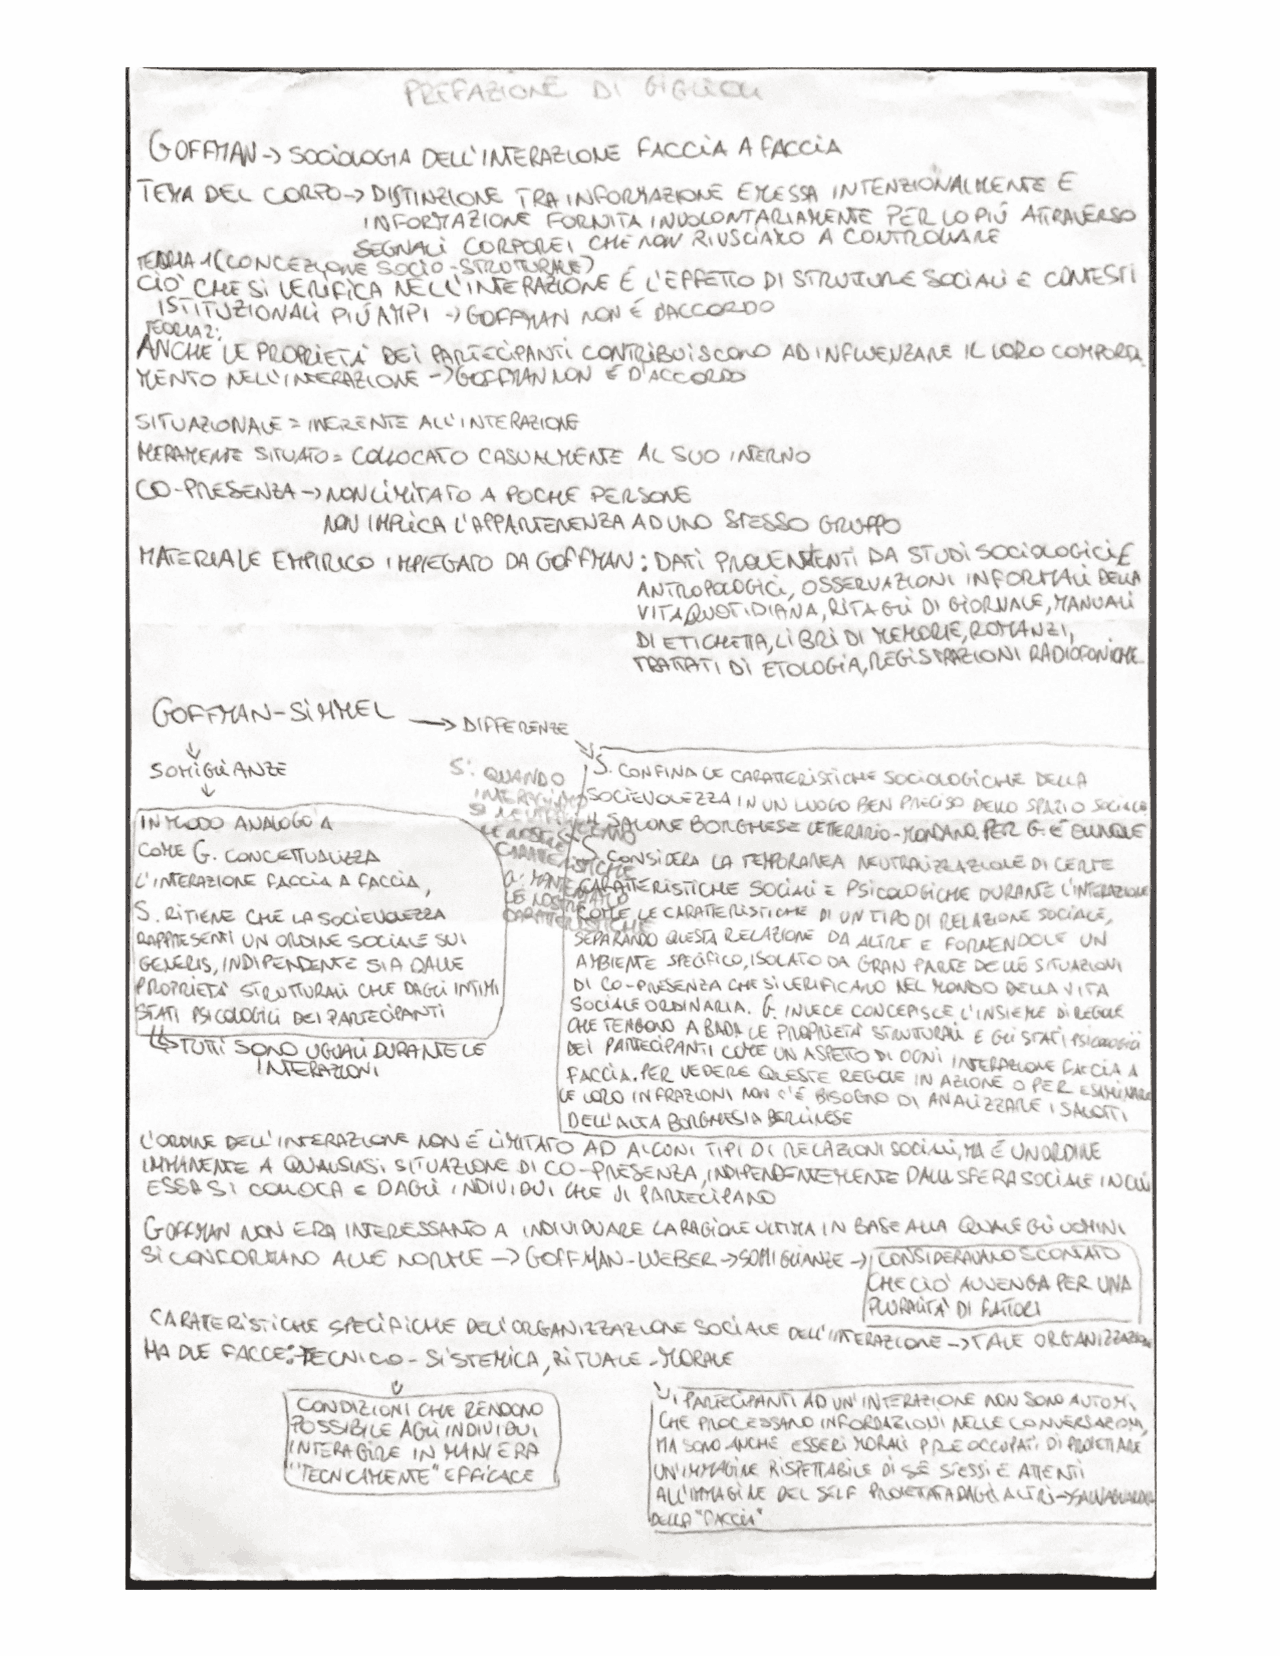 PREFAZIONE DI GIGLIOLI
GOFFMAN -> SOCIOLOGIA DELL'INTERAZIONE FACCIA A FACCIA
TEMA DEL CORPO -> DISTINZIONE TRA INFORMAZIONE EMESSA INTENZIONALMENTE E
INFORMAZIONE FORNITA INVOLONTARIAMENTE PER LO PIÚ ATTRAVERSO
SEGNALI CORPOREI CHE NON RIUSCIAMO A CONTROLLARE
TEORIA 1 (CONCEZIONE SOCIO-STRUTTURALE)
CIO' CHE SI VERIFICA NELL'INTERAZIONE É L'EFFETTO DI STRUTTURE SOCIALI E CONTESTI
ISTITUZIONALI PIÚ AMPI -> GOFFMAN NON É D'ACCORDO
TEORIA 2:
ANCHE LE PROPRIETÀ DEI PARTECIPANTI CONTRIBUISCONO AD INFLUENZARE IL LORO COMPORTA
MENTO NELL'INTERAZIONE -> GOFFMAN NON É D'ACCORDO
SITUAZIONALE = INERENTE ALL'INTERAZIONE
MERAMENTE SITUATO = COLLOCATO CASUALMENTE AL SUO INTERNO
CO-PRESENZA -> NON LIMITATO A POCHE PERSONE
NON IMPLICA L'APPARTENENZA AD UNO STESSO GRUPPO
MATERIALE EMPIRICO IMPIEGATO DA GOFFMAN: DATI PROVENIENTI DA STUDI SOCIOLOGICI E
ANTROPOLOGICI, OSSERVAZIONI INFORMALI DELLA
VITA QUOTIDIANA, RITAGLI DI GIORNALE, MANUALI
DI ETICHETTA, LIBRI DI MEMORIE, ROMANZI,
TRATTATI DI ETOLOGIA, REGISTRAZIONI RADIOFONICHE.
GOFFMAN-SIMMEL -> DIFFERENZE
SOMIGLIANZE
IN MODO ANALOGO A
COME G. CONCETTUALIZZA
L'INTERAZIONE FACCIA A FACCIA,
S. RITIENE CHE LA SOCIEVOLEZZA
RAPPRESENTI UN ORDINE SOCIALE SUI
GENERIS, INDIPENDENTE SIA DALLE
PROPRIETÀ STRUTTURALI CHE DAGLI INTIMI
STATI PSICOLOGICI DEI PARTECIPANTI
TUTTI SONO UGUALI DURANTE LE
INTERAZIONI
S: QUANDO
INTERAGIAMO
SI NEUTRALIZZANO
LE NOSTRE
CARATTERISTICHE
G: MANTENIAMO
LE NOSTRE
CARATTERISTICHE
S. CONFINA LE CARATTERISTICHE SOCIOLOGICHE DELLA
SOCIEVOLEZZA IN UN LUOGO BEN PRECISO DELLO SPAZIO SOCIALE:
IL SALONE BORGHESE LETTERARIO-MONDANO. PER G. É OVUNQUE
S. CONSIDERA LA TEMPORANEA NEUTRALIZZAZIONE DI CERTE
CARATTERISTICHE SOCIALI E PSICOLOGICHE DURANTE L'INTERAZIONE
COME LE CARATTERISTICHE DI UN TIPO DI RELAZIONE SOCIALE,
SEPARANDO QUESTA RELAZIONE DA ALTRE E FORNENDOLE UN
AMBIENTE SPECIFICO, ISOLATO DA GRAN PARTE DELLE SITUAZIONI
DI CO-PRESENZA CHE SI VERIFICANO NEL MONDO DELLA VITA
SOCIALE ORDINARIA. G. INVECE CONCEPISCE L'INSIEME DI REGOLE
CHE TENGONO A BADA LE PROPRIETÀ STRUTTURALI E GLI STATI PSICOLOGICI
DEI PARTECIPANTI COME UN ASPETTO DI OGNI INTERAZIONE FACCIA A
FACCIA. PER VEDERE QUESTE REGOLE IN AZIONE O PER ESAMINARE
LE LORO INFRAZIONI NON C'É BISOGNO DI ANALIZZARE I SALOTTI
DELL'ALTA BORGHESIA BERLINESE
L'ORDINE DELL'INTERAZIONE NON É LIMITATO AD ALCUNI TIPI DI RELAZIONI SOCIALI, MA É UN ORDINE
IMMANENTE A QUALSIASI SITUAZIONE DI CO-PRESENZA, INDIPENDENTEMENTE DALLA SFERA SOCIALE IN CUI
ESSA SI COLLOCA E DAGLI INDIVIDUI CHE VI PARTECIPANO
GOFFMAN NON ERA INTERESSANTO A INDIVIDUARE LA RAGIONE ULTIMA IN BASE ALLA QUALE GLI UOMINI
SI CONFORMANO ALLE NORME -> GOFFMAN-WEBER -> SOMIGLIANZE -> CONSIDERAVANO SCONTATO
CHE CIO' AVVENGA PER UNA
PLURALITÀ DI FATTORI
CARATTERISTICHE SPECIFICHE DELL'ORGANIZZAZIONE SOCIALE DELL'INTERAZIONE -> TALE ORGANIZZAZIONE
HA DUE FACCE: TECNICO-SISTEMICA, RITUALE-MORALE
CONDIZIONI CHE RENDONO
POSSIBILE AGLI INDIVIDUI
INTERAGIRE IN MANIERA
"TECNICAMENTE" EFFICACE
I PARTECIPANTI AD UN'INTERAZIONE NON SONO AUTOMI,
CHE PROCESSANO INFORMAZIONI NELLE CONVERSAZIONI,
MA SONO ANCHE ESSERI MORALI PREOCCUPATI DI PROIETTARE
UN'IMMAGINE RISPETTABILE DI SÉ STESSI E ATTENTI
ALL'IMMAGINE DEL SELF PROIETTATA DAGLI ALTRI -> SALVAGUARDIA
DELLA "FACCIA"